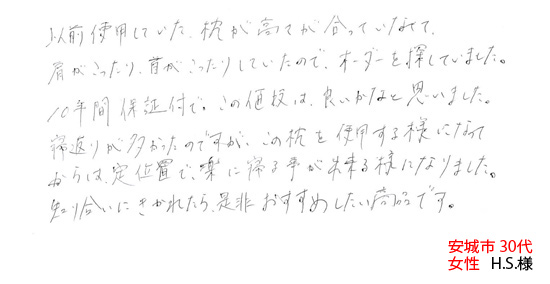 以前使用していた、枕が高さが合っていなくて、
肩がこったり、首がこったりしていたので、オーダーを探していました。
10年間保証付で。この値段は、良いかなと思いました。
寝返りが多かったのですが、この枕を使用する様になって
からは、定位置で、楽に寝る事が出来る様になりました。
知り合いにきかれたら、是非おすすめしたい商品です。
安城市 30代
女性 H.S.様